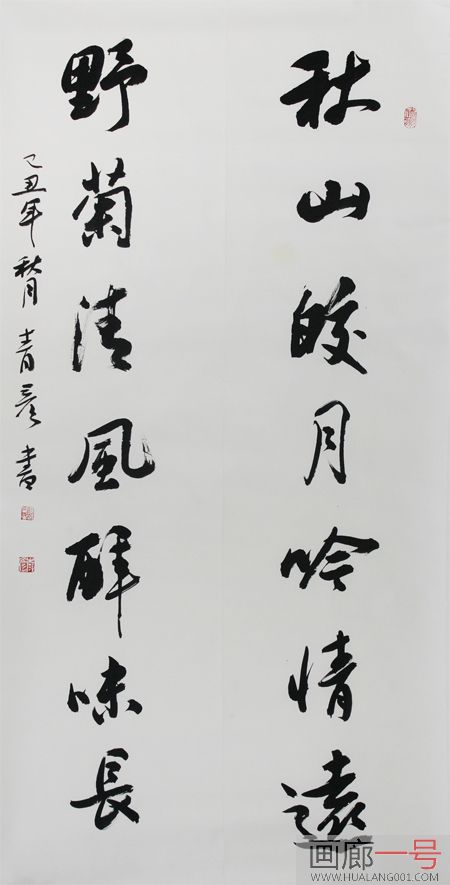 秋山皎月吟情遠
野菊清風醉味長
己丑年秋月青彥書
画廊一号
WWW.HUALANG001.COM